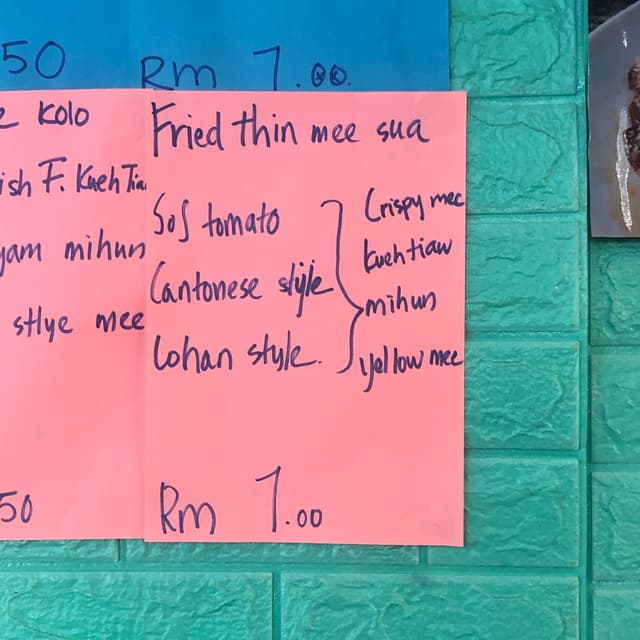 50
Rm 7.00
kolo
ish F. Kueh Tia
yam mihun
sHye mee
50
Fried thin mee sua
Sos tomato
Cantonese style
Lohan style.
Crispy mee
kueh tiaw
mihun
yellow mee
Rm 7.00